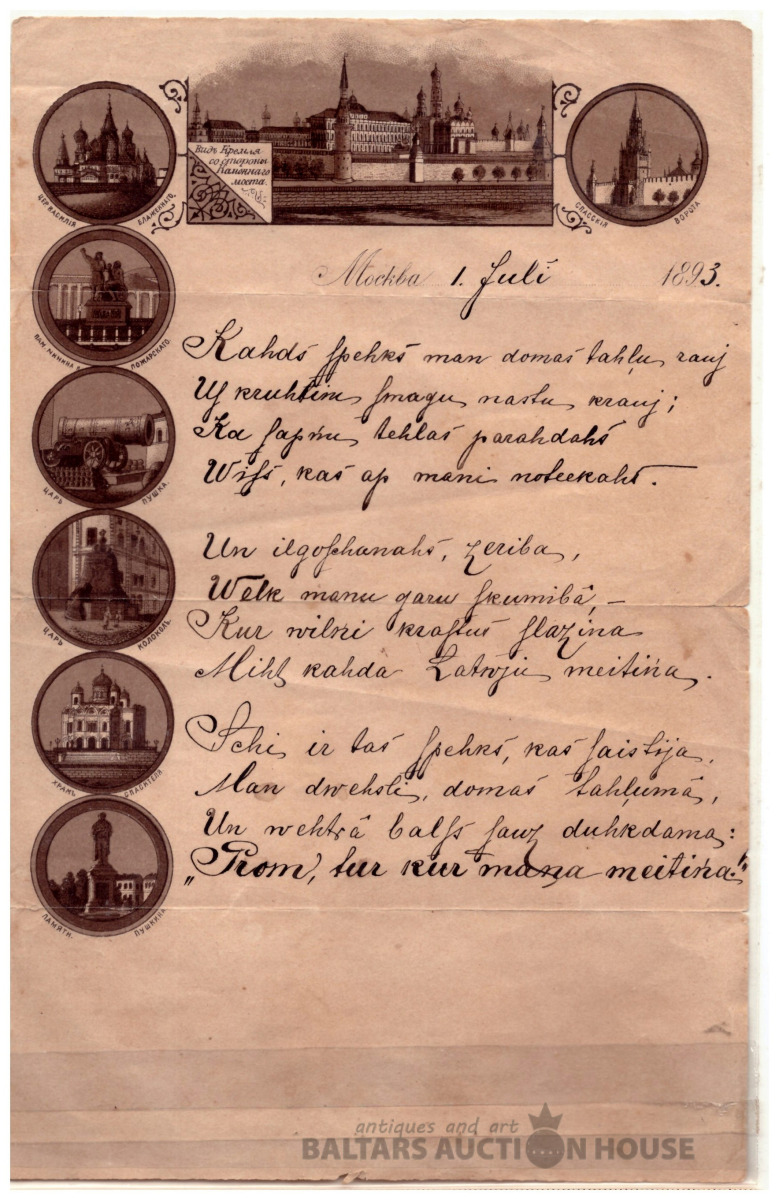 Видъ Кремля
со стороны
Каменнаго
моста.
ЦЕР. ВАСИЛІЯ БЛАЖЕННАГО.
СПАССКІЯ ВОРОТА
Москва 1. Juli 1893.
ПАМ. МИНИНА И ПОЖАРСКАГО.
Kahds ſpehks man domas tahļu rauj
Uſ kruhtim ſmagu nastu krauj;
Ka ſapņu tehlas parahdahs
Wiſs, kas ap mani noteekahs.
ЦАРЬ ПУШКА.
Un ilgoſchanahs, zeriba,
Welk manu garu ſkumibâ, –
Kur wilņi kraſtus ſlazina
Miht kahda Latwju meitiņa.
ЦАРЬ КОЛОКОЛЪ.
Schi ir tas ſpehks, kas ſaistija,
Man dwehsli, domas tahļumâ,
Un wehtrâ balſs ſauz duhkdama:
„Prom, tur kur mana meitiņa!“
ХРАМЪ СПАСИТЕЛЯ
ПАМЯТН. ПУШКИНА
antiques and art
BALTARS AUCTION HOUSE